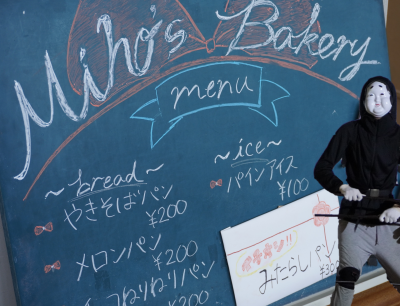 Miho's Bakery
menu
～bread～
やきそばパン
¥200
メロンパン
¥200
ねりねりパン
¥200
～ice～
パインアイス
¥100
みたらしパン